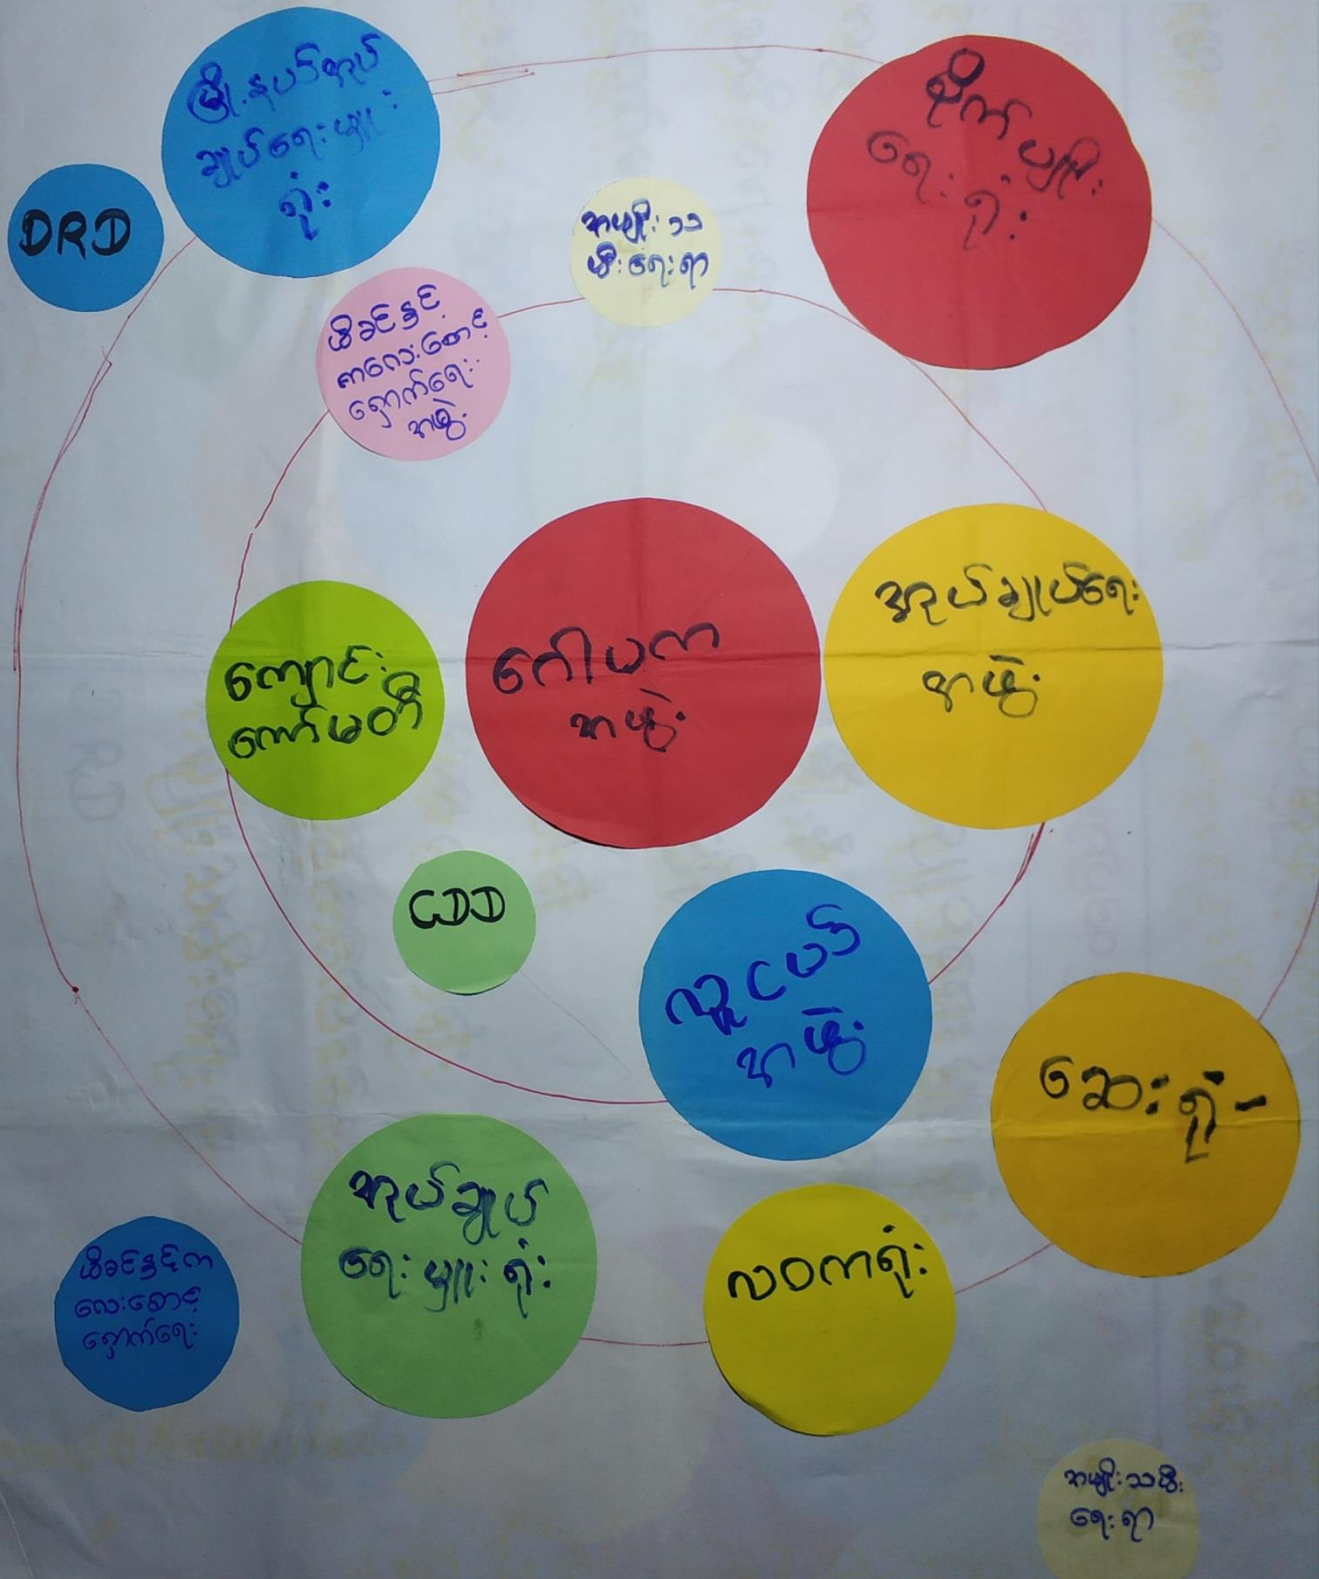 မြို့နယ်အုပ်
ချုပ်ရေးမှူး
ရုံး
DRD
စိုက်ပျိုး
ရေးရုံး
အမျိုးသ
မီးရေးရာ
မိခင်နှင့်
ကလေးစောင့်
ရှောက်ရေး
အဖွဲ့
ကျောင်း
ကော်မတီ
ဂေါပက
အဖွဲ့
အုပ်ချုပ်ရေး
အဖွဲ့
CDD
လူငယ်
အဖွဲ့
ဆေးရုံ-
အုပ်ချုပ်
ရေးမှူးရုံး
လဝကရုံး
မိခင်နှင့်က
လေးစောင့်
ရှောက်ရေး
အမျိုးသမီး
ရေးရာ